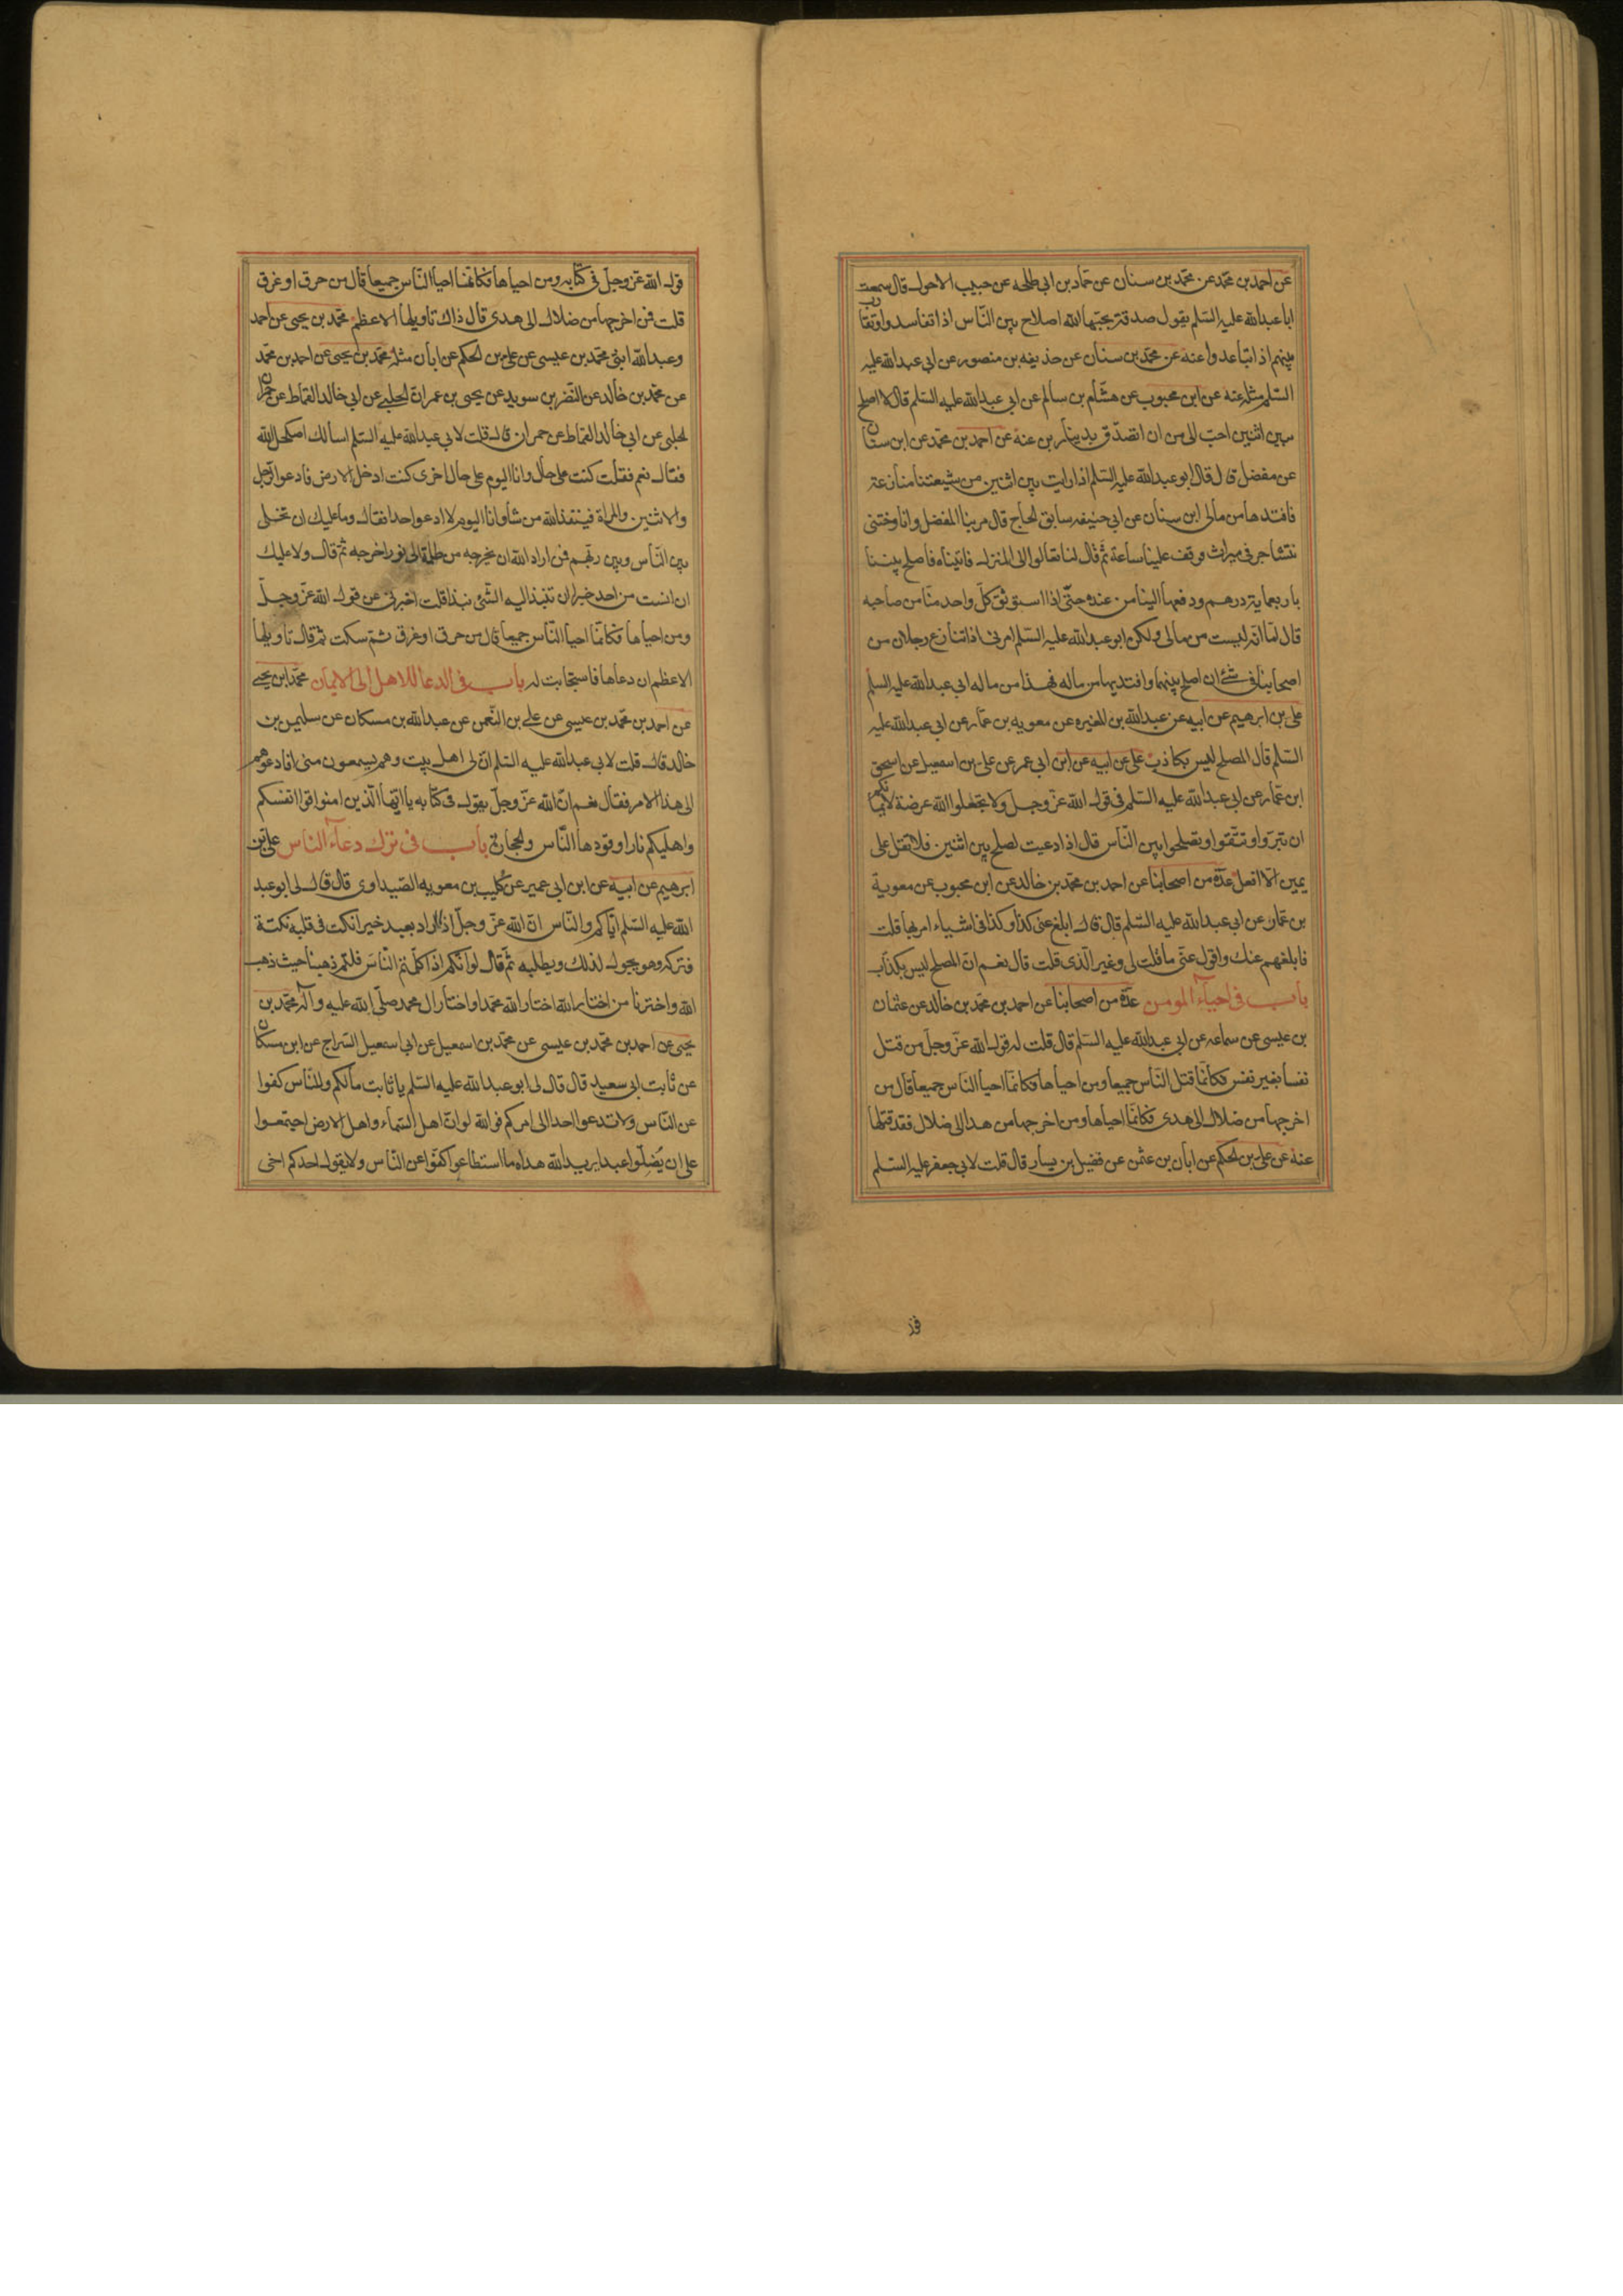 عن احمد بن محمد عن محمد بن سنان عن حماد بن ابى طلحه عن حبيب الاحول قال سمعت
ابا عبدالله عليه السلم يقول صدقة يحبّها الله اصلاح بين النّاس اذا تفاسدوا وتقارب
بينهم اذا تباعدوا عنه عن محمّد بن سنان عن حذيفه بن منصور عن ابى عبدالله عليه
السّلم مثله عنه عن ابن محبوب عن هشام بن سالم عن ابى عبدالله عليه السّلم قال لا اصلح
بين اثنين احبّ الى من ان اتصدّق بدينارين عنه عن احمد بن محمّد عن ابن سنان
عن مفضل قال قال ابو عبدالله عليه السّلم اذا رايت بين اثنين من شيعتنا منازعة
فافتدها من مالى ابن سنان عن ابى حنيفه سابق الحاج قال مر بنا المفضل وانا وختنى
نتشاجر فى ميراث فوقف علينا ساعة ثمّ قال لنا تعالوا الى المنزل فاتيناه فاصلح بيننا
باربعماية درهم ودفعها الينا من عنده حتّى اذا استوثق كلّ واحد منّا من صاحبه
قال امّا انّها ليست من مالى ولكن ابو عبدالله عليه السّلم امرنى اذا تنازع رجلان من
اصحابنا فى شئ ان اصلح بينهما وافتديها من ماله فهذا من مال ابى عبدالله عليه السلم
على بن ابرهيم عن ابيه عن عبدالله بن المغيره عن معويه بن عمار عن ابى عبدالله عليه
السّلم قال المصلح ليس بكاذب على عن ابيه عن ابن ابى عمر عن على بن اسمعيل عن اسحق
ابن عمّار عن ابى عبدالله عليه السّلم فى قول الله عزّ وجلّ ولا تجعلوا الله عرضة لايمانكم
ان تبرّوا وتتّقوا وتصلحوا بين النّاس قال اذا دعيت لصلح بين اثنين فلا تقل على
يمين الّا افعل عدّة من اصحابنا عن احمد بن محمّد بن خالد عن ابن محبوب عن معوية
بن عمّار عن ابى عبدالله عليه السّلم قال قال ابلغ عنى كذا وكذا فى اشياء امر بها قلت
فابلغهم عنك واقول عنّى ما قلت لى وغير الّذى قلت قال نعم انّ المصلح ليس بكذّاب
باب فى احياء المومن عدّة من اصحابنا عن احمد بن محمّد بن خالد عن عثمان
بن عيسى عن سماعه عن ابى عبدالله عليه السّلم قال قلت له قول الله عزّ وجلّ من قتل
نفسا بغير نفس فكانّما قتل النّاس جميعا ومن احياها فكانّما احيا النّاس جميعا قال من
اخرجها من ضلال الى هدى فكانّما احياها ومن اخرجها من هدا الى ضلال فقد قتلها
عنه عن على بن الحكم عن ابان بن عثمن عن فضيل بن يسار قال قلت لابى جعفر عليه السّلم
قول الله عزّ وجلّ فى كتابه ومن احياها فكانّما احيا النّاس جميعا قال من حرق او غرق
قلت فمن اخرجها من ضلال الى هدى قال ذاك تاويلها الاعظم محمّد بن يحيى عن احمد
وعبدالله ابنى محمّد بن عيسى عن على بن الحكم عن ابان مثله محمّد بن يحيى عن احمد بن محمّد
عن محمّد بن خالد عن النّضر بن سويد عن يحيى بن عمران الحلبى عن ابى خالد القماط عن حمران
لحلبى عن ابى خالد القماط عن حمران قال قلت لابى عبدالله عليه السّلم اسالك اصلحك الله
فقال نعم فقلت كنت على حال وانا اليوم على حال اخرى كنت ادخل الارض فادعوا الرّجل
والاثنين والمراة فينقذ الله من شا وانا اليوم لا ادعو احدا فقال وما عليك ان تخلى
بين النّاس وبين ربّهم فمن اراد الله ان يخرجه من ظلمة الى نور اخرجه ثمّ قال ولا عليك
ان انست من احد خيرا ان تنبذ اليه الشّئ نبذا قلت اخبرنى عن قول الله عزّ وجلّ
ومن احياها فكانّما احيا النّاس جميعا قال من حرق او غرق ثمّ سكت ثمّ قال تاويلها
الاعظم ان دعاها فاستجابت له باب فى الدعا للاهل الى الايمان محمّد ابن يحيى
عن احمد بن محمّد بن عيسى عن على بن النّعمن عن عبدالله بن مسكان عن سليمن بن
خالد قال قلت لابى عبدالله عليه السّلم انّ لى اهل بيت وهم يسمعون منى افادعوهم
الى هذا الامر فقال نعم انّ الله عزّ وجلّ يقول فى كتابه يا ايّها الّذين امنوا قوا انفسكم
واهليكم نارا وقودها النّاس والحجارة باب فى ترك دعاء الناس على بن
ابرهيم عن ابيه عن ابن ابى عمير عن كليب بن معويه الصّيداوى قال قال لى ابو عبد
الله عليه السّلم ايّاكم والنّاس انّ الله عزّ وجلّ اذا اراد بعبد خيرا نكت فى قلبه نكتة
فتركه وهو يجول لذلك ويطلبه ثمّ قال لو انّكم اذا كلّمتم النّاس قلتم ذهبنا حيث ذهب
الله واخترنا من اختار الله اختار الله محمّدا واختار ال محمد صلّى الله عليه واله محمّد بن
يحيى عن احمد بن محمّد بن عيسى عن محمّد بن اسمعيل عن ابى اسمعيل السّراج عن ابن مسكان
عن ثابت ابى سعيد قال قال لى ابو عبدالله عليه السّلم يا ثابت مالكم وللنّاس كفوا
عن النّاس ولا تدعوا احدا الى امركم فو الله لو انّ اهل السّماء واهل الارض اجتمعوا
على ان يُضِلّوا عبدا يريد الله هداه ما استطاعوا كفّوا عن النّاس ولا يقول احدكم اخى